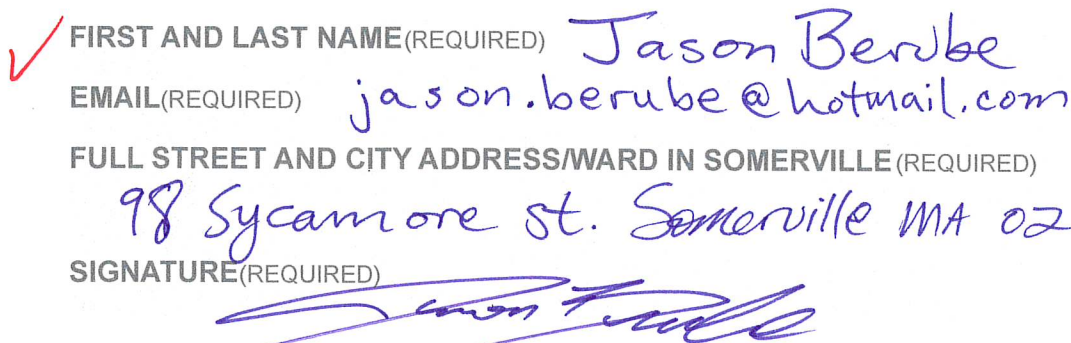 FIRST AND LAST NAME(REQUIRED) Jason Berube
EMAIL(REQUIRED) jason.berube@hotmail.com
FULL STREET AND CITY ADDRESS/WARD IN SOMERVILLE(REQUIRED)
98 Sycamore st. Somerville MA 02
SIGNATURE(REQUIRED)